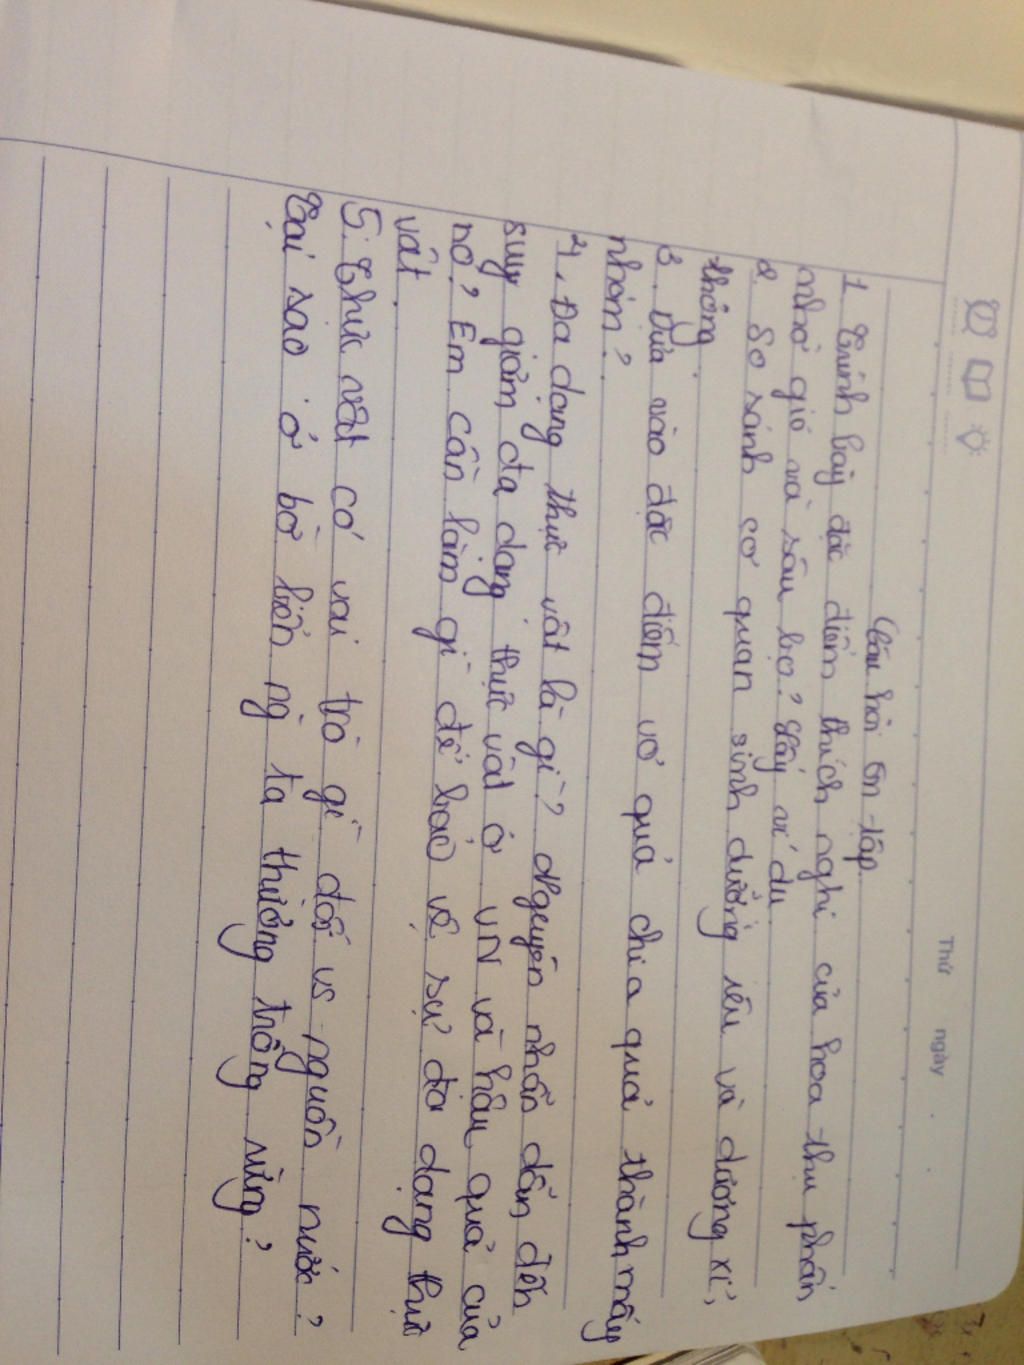 Thứ ngày
Câu hỏi ôn tập
1. Trình bày đặc điểm thích nghi của hoa thụ phấn
nhờ gió và sâu bọ? Lấy ví dụ
2. So sánh cơ quan sinh dưỡng rêu và dương xỉ,
thông.
3. Dựa vào đặc điểm vỏ quả chia quả thành mấy
nhóm?
4. Đa dạng thực vật là gì? Nguyên nhân dẫn đến
suy giảm đa dạng thực vật ở VN và hậu quả của
nó? Em cần làm gì để bảo vệ sự đa dạng thực
vật.
5. Thực vật có vai trò gì đối vs nguồn nước?
Tại sao ở bờ biển ng ta thường trồng rừng?